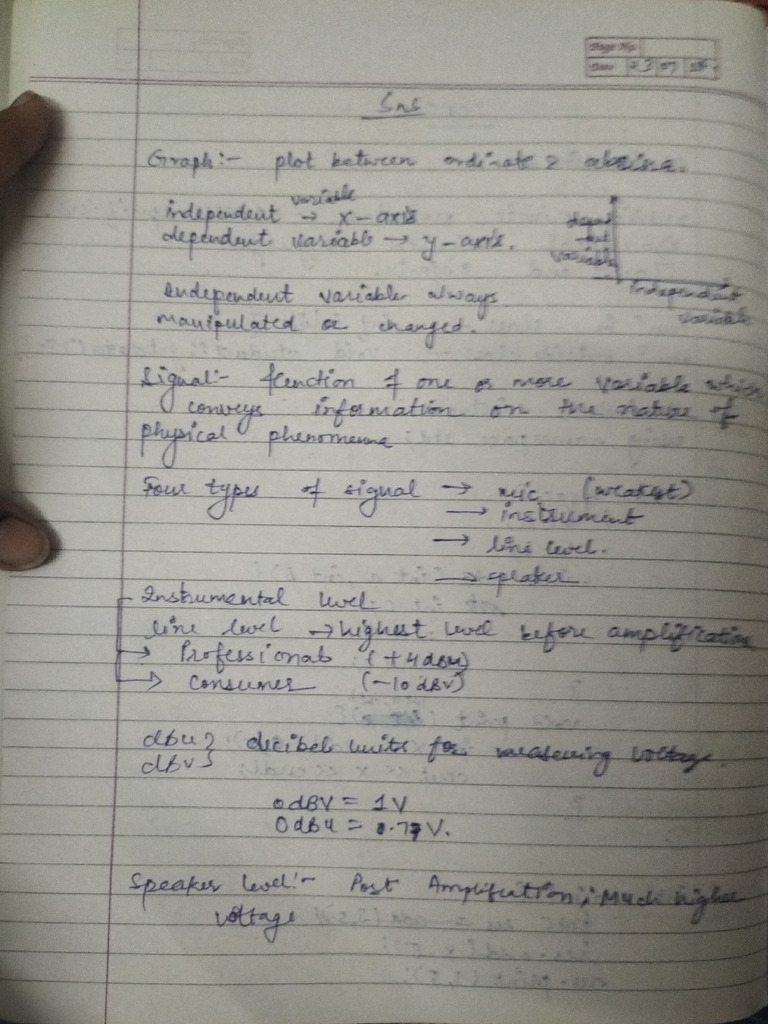 Page No.
Date 23 07
SnS
Graph:- plot between ordinate & absissa.
independent variable → x-axis
dependent variable → y-axis.
depend
-ent
variable
independent
variable
Independent variable always
manipulated or changed.
Signal:- function of one or more variable which
conveys information on the nature of
physical phenomena
Four types of signal → mic (weakest)
→ instrument
→ line level.
→ speaker.
Instrumental level.
line level → highest level before amplification
→ Professional (+4dBu)
→ Consumer (-10 dBV)
dBu } decibel units for measuring voltage.
dBV }
0 dBV = 1V
0 dBu = 0.77V.
Speaker level:- Post Amplification; Much higher
voltage